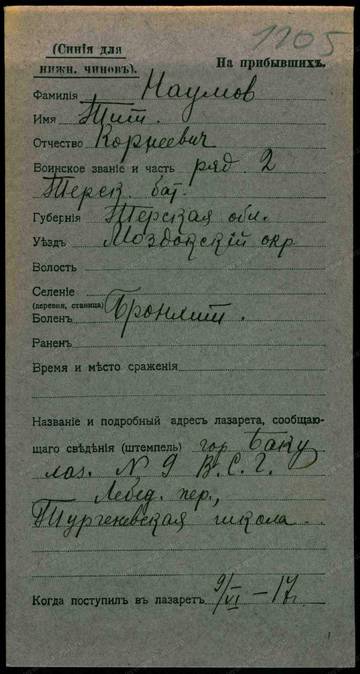 1105
(Синія для
нижн. чиновъ).
На прибывшихъ.
Фамилія Наумов
Имя Тит.
Отчество Корнеевич
Воинское званіе и часть ряд. 2
Терск. бат.
Губернія Терская обл.
Уѣздъ Моздокскій окр
Волость
Селеніе
(деревня, станица)
Боленъ Бронхит.
Раненъ
Время и мѣсто сраженія
Названіе и подробный адресъ лазарета, сообщаю-
щаго свѣдѣнія (штемпель) гор. Баку
лаз. N 9 В.С.Г.
Лебед. пер.,
Тургеневская школа
Когда поступилъ въ лазаретъ 9/VI —17г